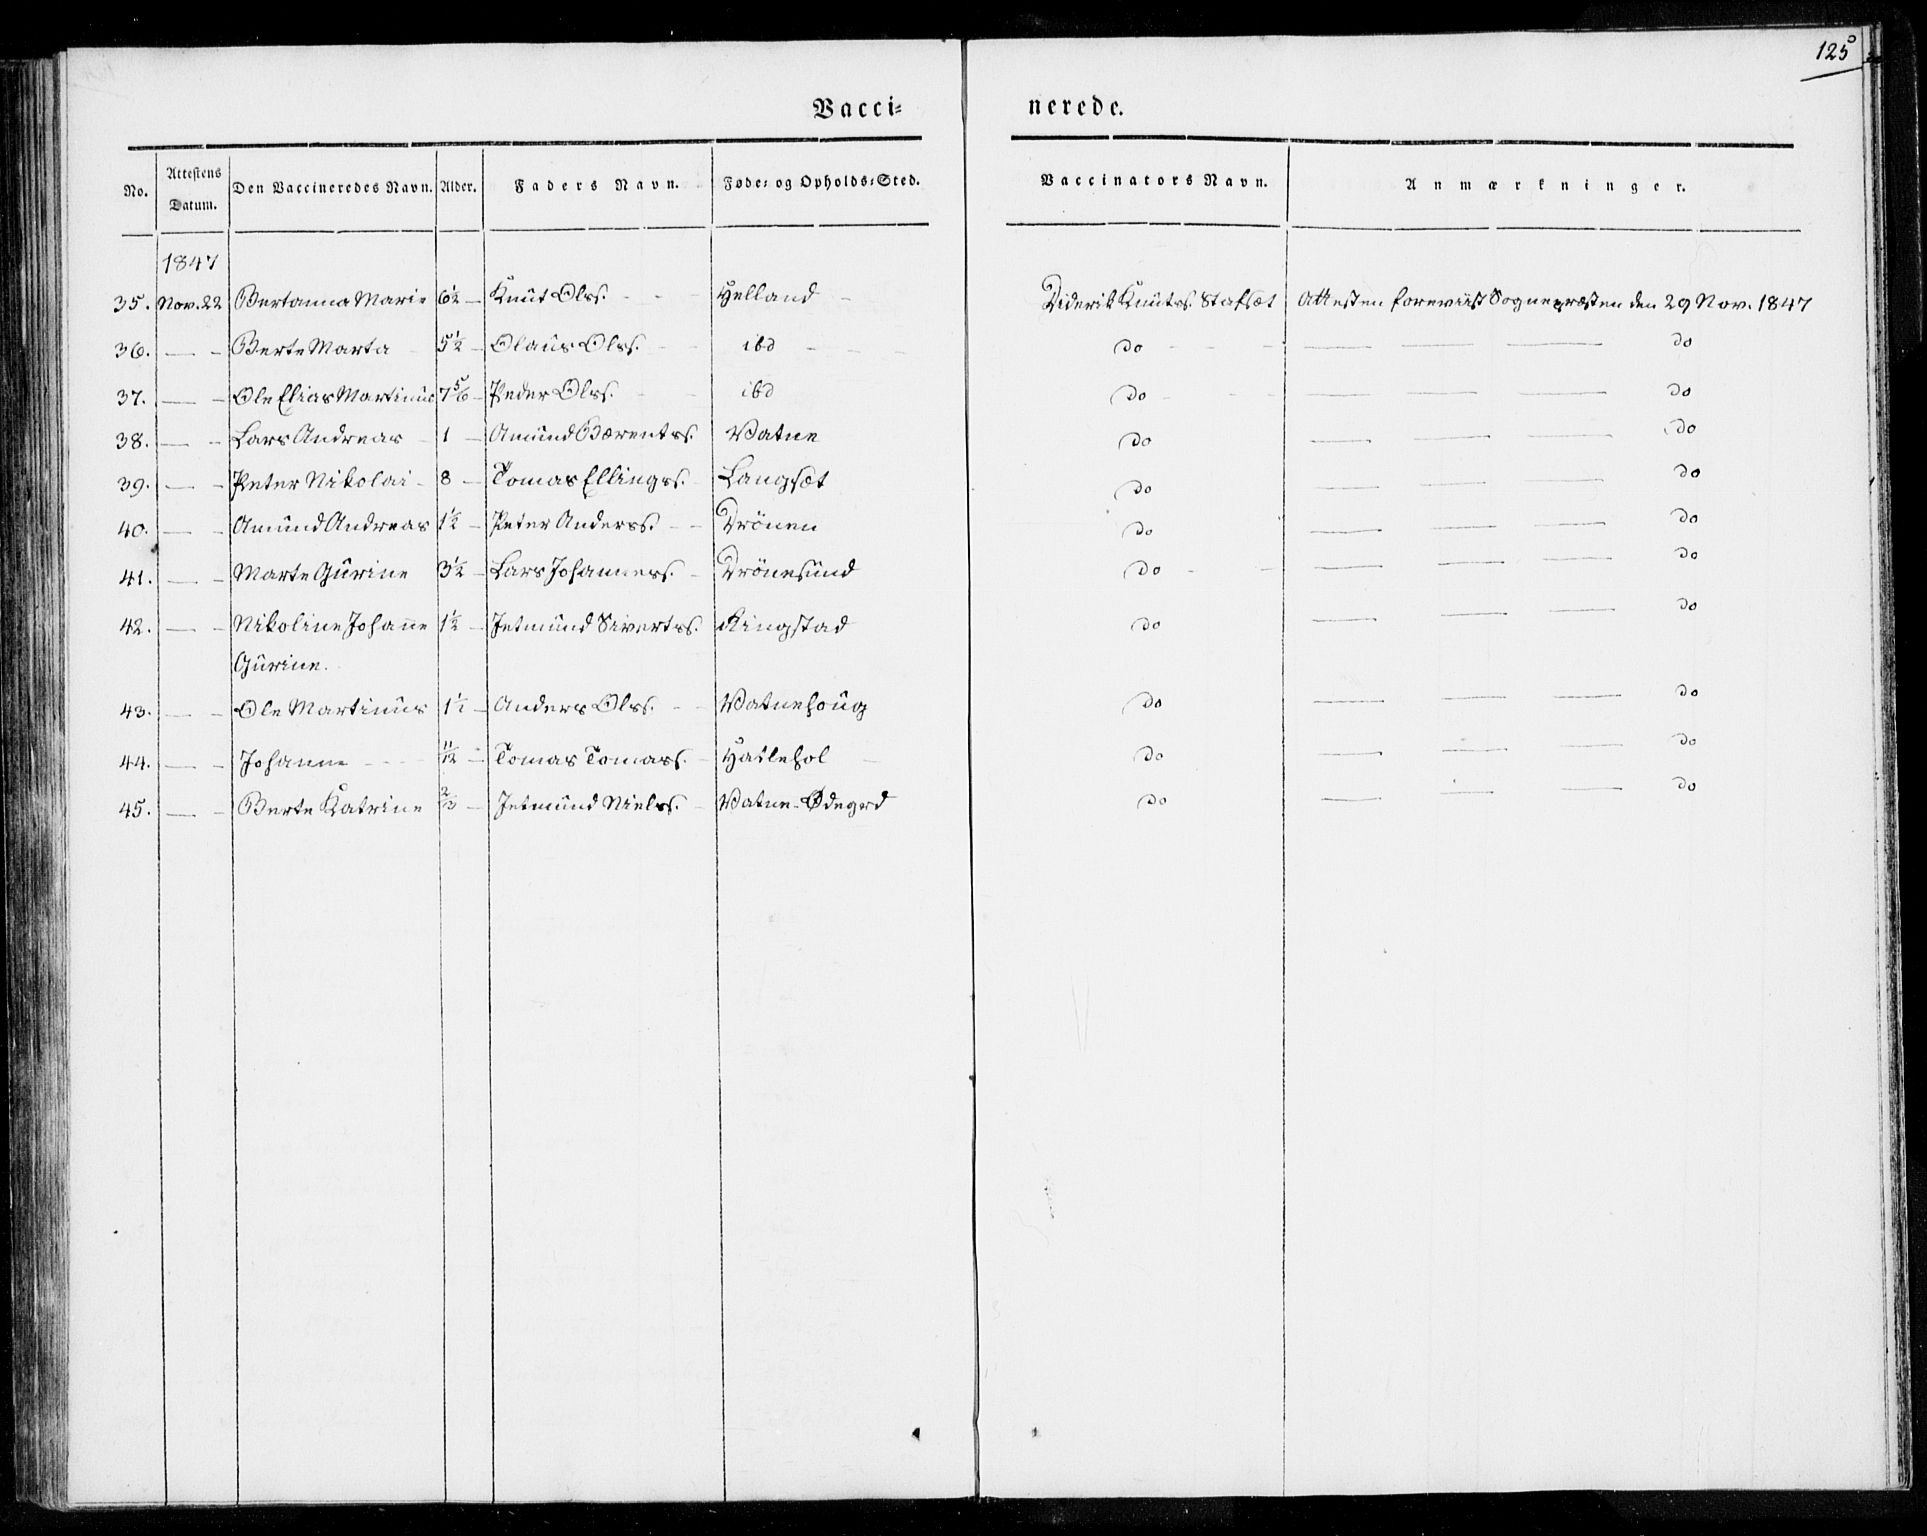 125
Vacci= nerede.
No. Attestens Datum. Den Vaccineredes Navn. Alder. Faders Navn. Føde= og Opholds=Sted. Vaccinators Navn. Anmærkninger.
1847
35. Nov. 22 Bertanna Marie 6½ Knut Ols. Helland Diderik Knuts. Stafset Attesten foreviist Sognepræsten den 29 Nov. 1847
36. — - Berte Marta 5½ Olaus Ols. ibd do — — — do
37. — - Ole Elias Martinus 7 5/6 Peder Ols. ibd do — — — do
38. — - Lars Andreas 1 Amund Bærents. Vatne do — — — do
39. — - Peter Nikolai 8 Tomas Ellings. Langset do — — — do
40. — - Amund Andreas 1½ Peter Anders. Drönen do — — — do
41. — - Marte Gurine 3½ Lars Johannes. Drönesund do — — — do
42. — - Nikoline Johanne 1½ Jetmund Siverts. Ringstad do — — — do
Gurine.
43. — - Ole Martinus Anders Ols. Vatnehoug do — — — do
44. — - Johanne 11/12 Tomas Tomass. Hatlehol do — — — do
45. — - Berte Katrine 2/3 Jetmund Niels. Vatne-Ödegrd do — — — do